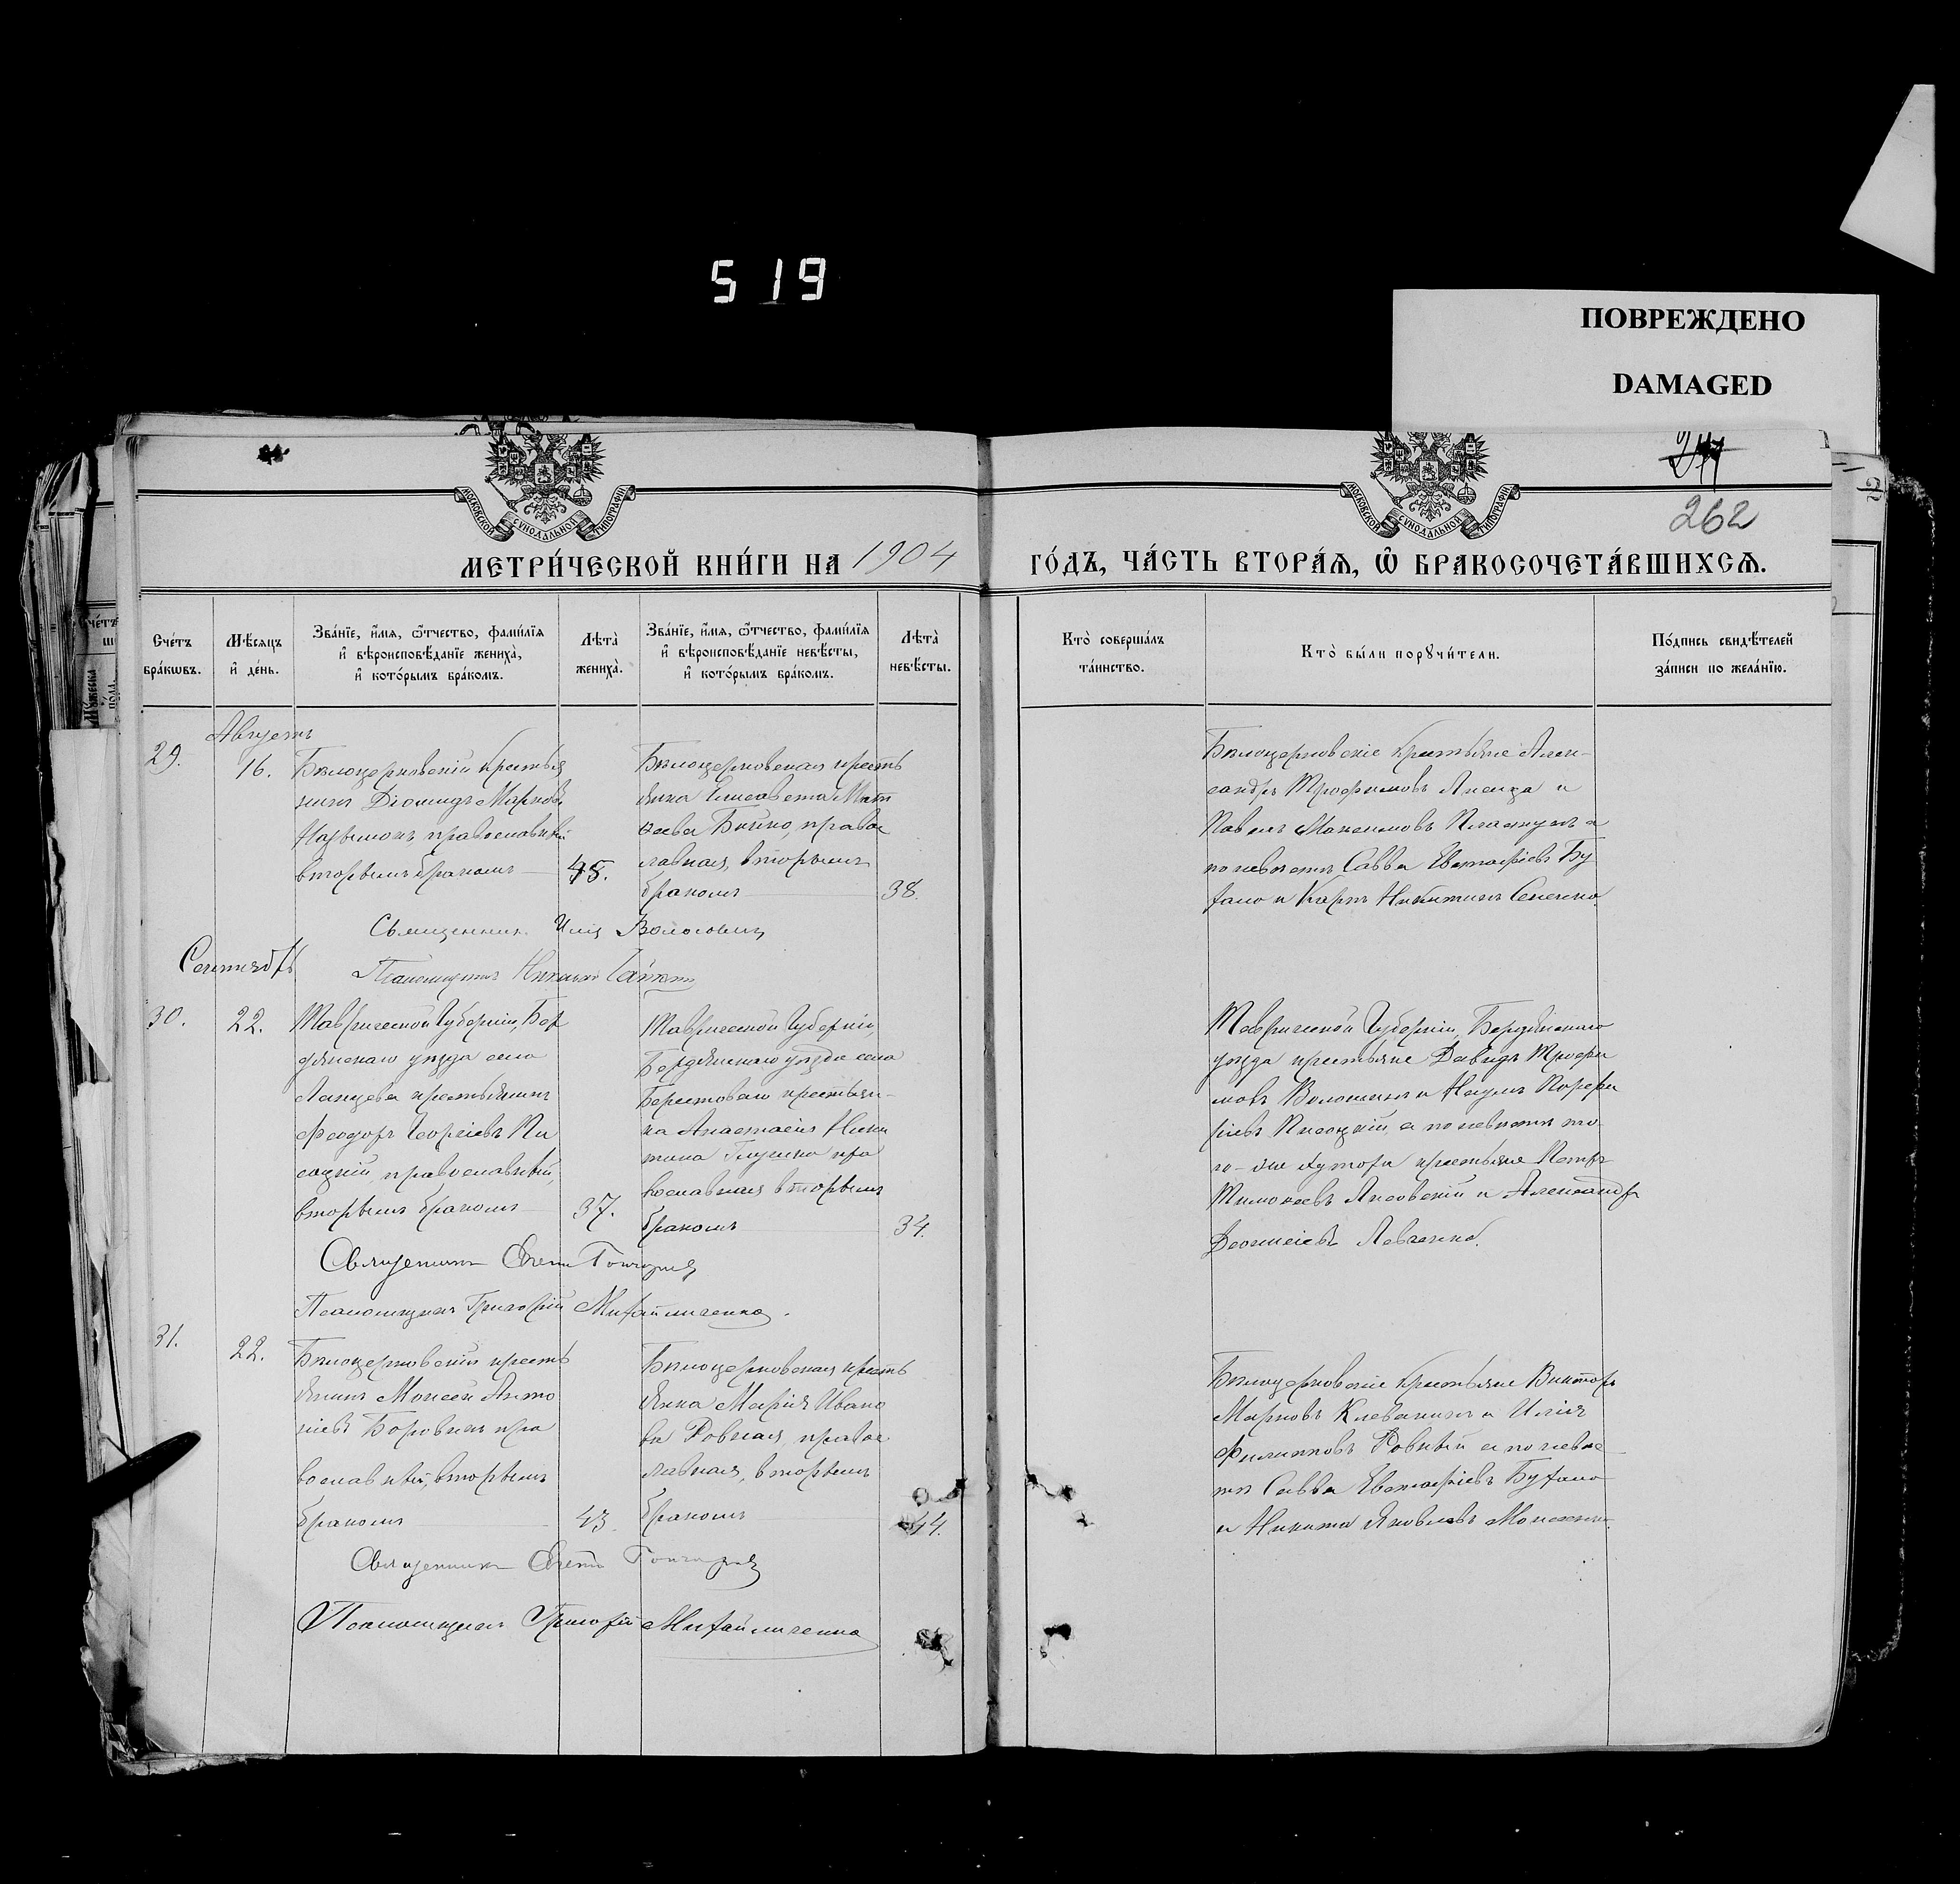 519
ПОВРЕЖДЕНО
DAMAGED
262
МОСКОВСКОЙ СѴНОДАЛЬНОЙ ТИПОГРАФІИ
МОСКОВСКОЙ СѴНОДАЛЬНОЙ ТИПОГРАФІИ
МЕТРИ́ЧЕСКОЙ КНИ́ГИ НА 1904 ГО́ДЪ, ЧА́СТЬ ВТОРА́Ѧ, Ѡ҆ БРАКОСОЧЕТА́ВШИХСѦ.
Сче́тъ бра́кѡвъ.
Мѣ́сѧцъ и҆ де́нь.
Зва́нїе, и҆́мѧ, ѻ҆́тчество, фами́лїѧ
и҆ вѣроисповѣ́данїе жениха̀,
и҆ кото́рымъ бра́комъ.
Лѣта̀ жениха̀.
Зва́нїе, и҆́мѧ, ѻ҆́тчество, фами́лїѧ
и҆ вѣроисповѣ́данїе невѣ́сты,
и҆ кото́рымъ бра́комъ.
Лѣта̀ невѣ́сты.
Кто̀ соверша́лъ та́инство.
Кто̀ бы́ли порꙋчи́тели.
По́дпись свидѣ́телей за́писи по жела́нїю.
Августъ
29.
16.
Бѣлоцерковскій крестья
нинъ Діомидъ Марковъ
православный
вторымъ бракомъ
45.
Бѣлоцерковская кресть
янка Елисавета Мат
ѳеева Бойко, правос
лавная, вторымъ
бракомъ
38.
Бѣлоцерковскіе крестьяне Алек-
сандръ Трофимовъ Лисица и
Павелъ Максимовъ а
по невѣстѣ Савва Евстафіевъ Бу
хало и Карпъ Никитинъ
Священникъ Илія
Сентябрь
Псаломщикъ
30.
22.
Таврической Губерніи, Бер
дянскаго уѣзда села
крестьянинъ
Феодоръ Георгіевъ Пи
соцкій, православный,
вторымъ бракомъ
37.
Таврической Губерніи,
Бердянскаго уѣзда села
Берестоваго крестьян-
ка Анастасія Ники
тина Глушко пра
вославная вторымъ
бракомъ
34.
Таврической Губерніи, Бердянскаго
уѣзда крестьяне Давидъ Трофи
мовъ Волошинъ и Наумъ Порфи
ріевъ Писоцкій, а по невѣстѣ то
го-же хутора крестьяне Петръ
Тимоѳеевъ Лисовскій и Александръ
Діонисіевъ Левченко.
Священникъ Гончаровъ
Псаломщикъ Григорій Михайличенко.
31.
22.
Бѣлоцерковскій кресть
янинъ Моисей Анто
ніевъ Боровикъ пра
вославный, вторымъ
бракомъ
43.
Бѣлоцерковская кресть
янка Марія Ивано
ва Ровная, правос
лавная, вторымъ
бракомъ
44.
Бѣлоцерковскіе крестьяне Викторъ
Марковъ и Илія
Филипповъ Ровный а по невѣс
тѣ Савва Евстафіевъ Бухало
и Никита Яковлевъ
Священникъ Гончаровъ
Псаломщикъ Григорій Михайличенко